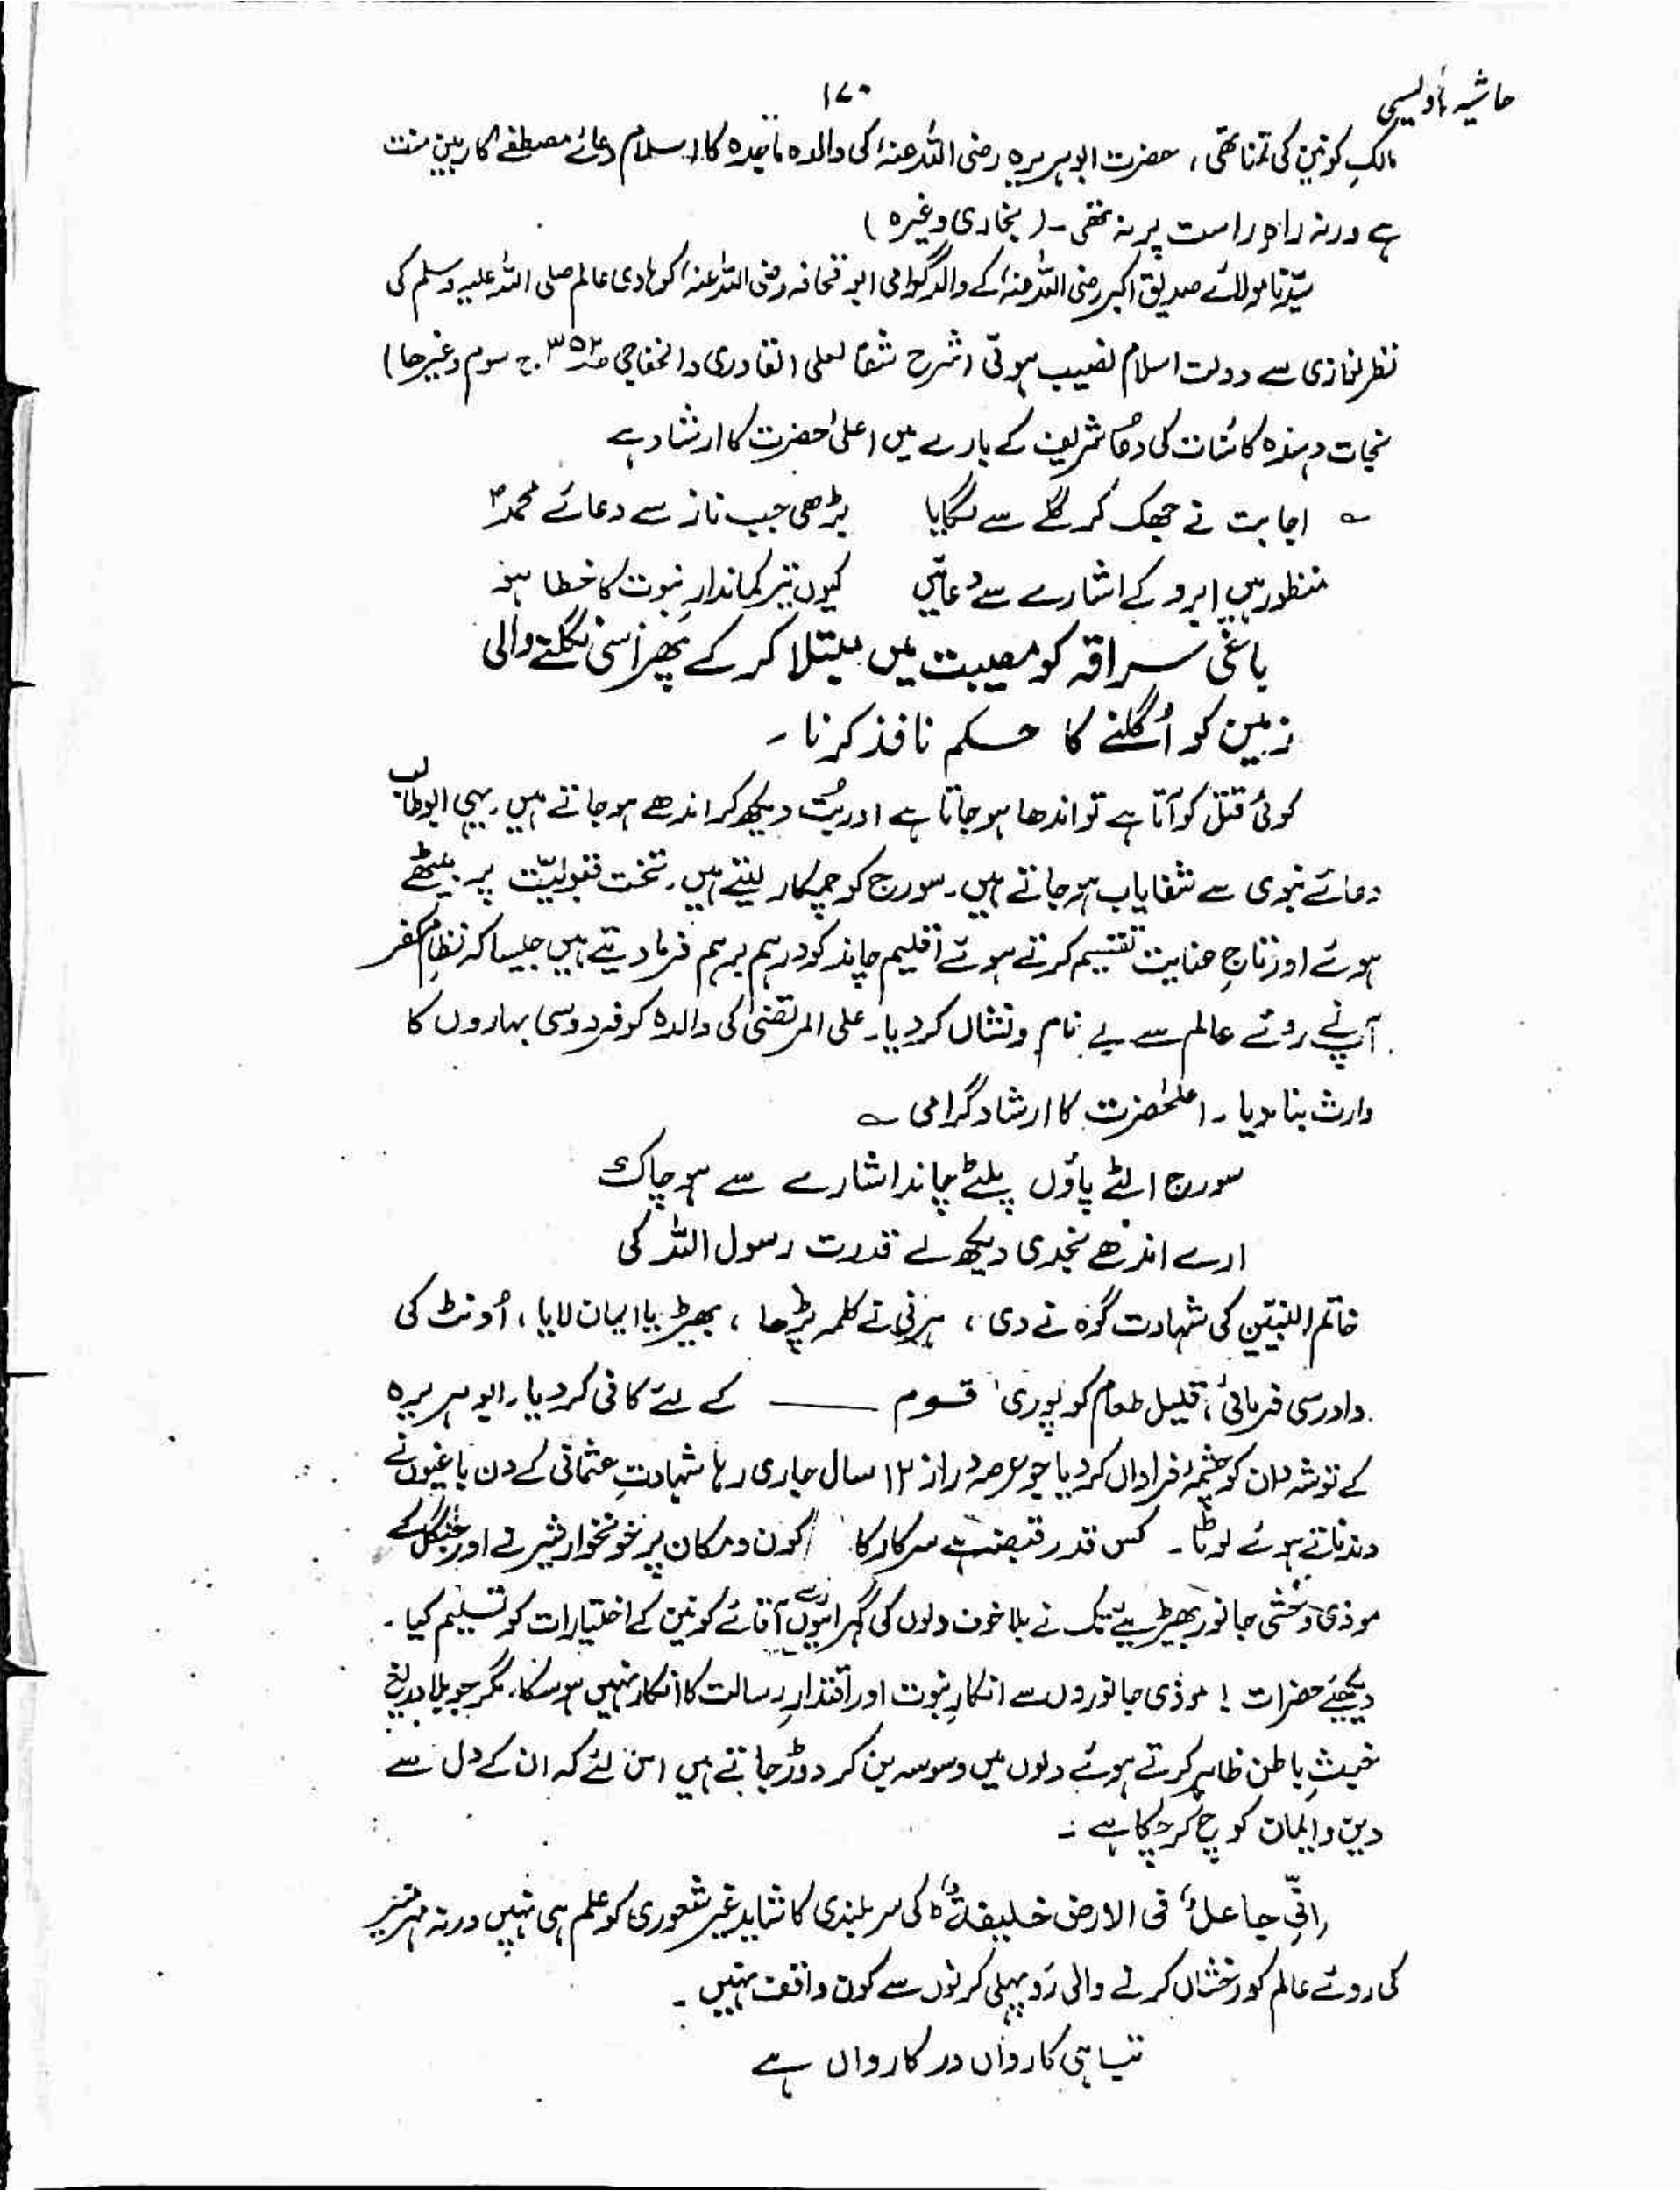 حاشیہ اویسی
۱۷۰
مالکِ کونین کی تمنا تھی، حضرت ابو ہریرہ رضی اللہ عنہ کی والدہ ماجدہ کا اسلام دعائے مصطفےٰ کا رہینِ منت
ہے ورنہ راہِ راست پر نہ تھی۔ (بخاری وغیرہ)
سیّدنا مولائے صدیق اکبر رضی اللہ عنہ کے والد گرامی ابو قحافہ رضی اللہ عنہ کو ہادی عالم صلی اللہ علیہ وسلم کی
نظر نمازی سے دولت اسلام نصیب ہوئی (شرح شفا لعلی القادری والخفاجی صہ ۳۵۲ ج سوم وغیرھا)
نجات دہندہ کائنات کی دعُا شریف کے بارے میں اعلیٰ حضرت کا ارشاد ہے
؎ اجابت نے جھک کر گلے سے لگایا بڑھی جب ناز سے دعائے محمدؐ
منظور ہیں ابرو کے اشارے سے دُعائیں کیوں تیر کماندارِ نبوت کا خطا ہو
باغی سراقہ کو مصیبت میں مبتلا کر کے پھر اسی نگلنے والی
زمین کو اُگلنے کا حسکم نافذ کرنا۔
کوئی قتل کو آتا ہے تو اندھا ہو جاتا ہے اور بُت دیکھ کر اندھے ہو جاتے ہیں۔ یہی ابوطالب
دعائے نبوی سے شفایاب ہو جاتے ہیں۔ سورج کو چمکار لیتے ہیں۔ تخت قبولیّت پر بیٹھے
ہوئے اور تاجِ عنایت تقسیم کرتے ہوئے اقلیم چاند کو درہم برہم فرما دیتے ہیں جیسا کہ نظامِ کفر
آپ نے روئے عالم سے بے نام و نشاں کر دیا۔ علی المرتضیٰ کی والدہ کو فردوسی بہاروں کا
وارث بنا دیا۔ اعلٰحضرت کا ارشاد گرامی ؎
سورج الٹے پاؤں پلٹے چاند اشارے سے ہو چاک
ارے اندھے نجدی دیکھ لے قدرت رسول اللہ کی
خاتم النبیّین کی شہادت گوہ نے دی، ہرنی نے کلمہ پڑھا، بھیڑیا ایمان لایا، اُونٹ کی
دادرسی فرمائی، قلیل طعام کو پوری قسوم ـــــ کے لئے کافی کر دیا۔ ابو ہریرہ
کے توشہ دان کو چشمۂ فراداں کر دیا جو عرصہ دراز ۱۲ سال جاری رہا شہادتِ عثمانی کے دن باغیوں نے
دندناتے ہوئے لوٹا۔ کس قدر قبضہ ہے سرکار کا کون و مکان پر خونخوار شیر نے اور جنگل کے
موذی وحشی جانور بھیڑیئے تک نے بلا خوف دلوں کی گہرائیوں سے آقائے کونین کے اختیارات کو تسلیم کیا۔
دیکھیئے حضرات! موذی جانوروں سے انکارِ نبوت اور اقتدارِ رسالت کا انکار نہیں ہو سکا۔ مگر جو بلا دریغ
خبثِ باطن ظاہر کرتے ہوئے دلوں میں وسوسہ بن کر دوڑ جاتے ہیں اس لئے کہ ان کے دل سے
دین و ایمان کوچ کر چکا ہے :۔
اِنّی جاعلٌ فی الارض خلیفۃً کی سر بلندی کا شاید غیر شعوری کو علم ہی نہیں ورنہ مہر منیر
کی روئے عالم کو درخشاں کرنے والی رَوپہلی کرنوں سے کون واقف نہیں۔
تباہی کارواں در کارواں ہے